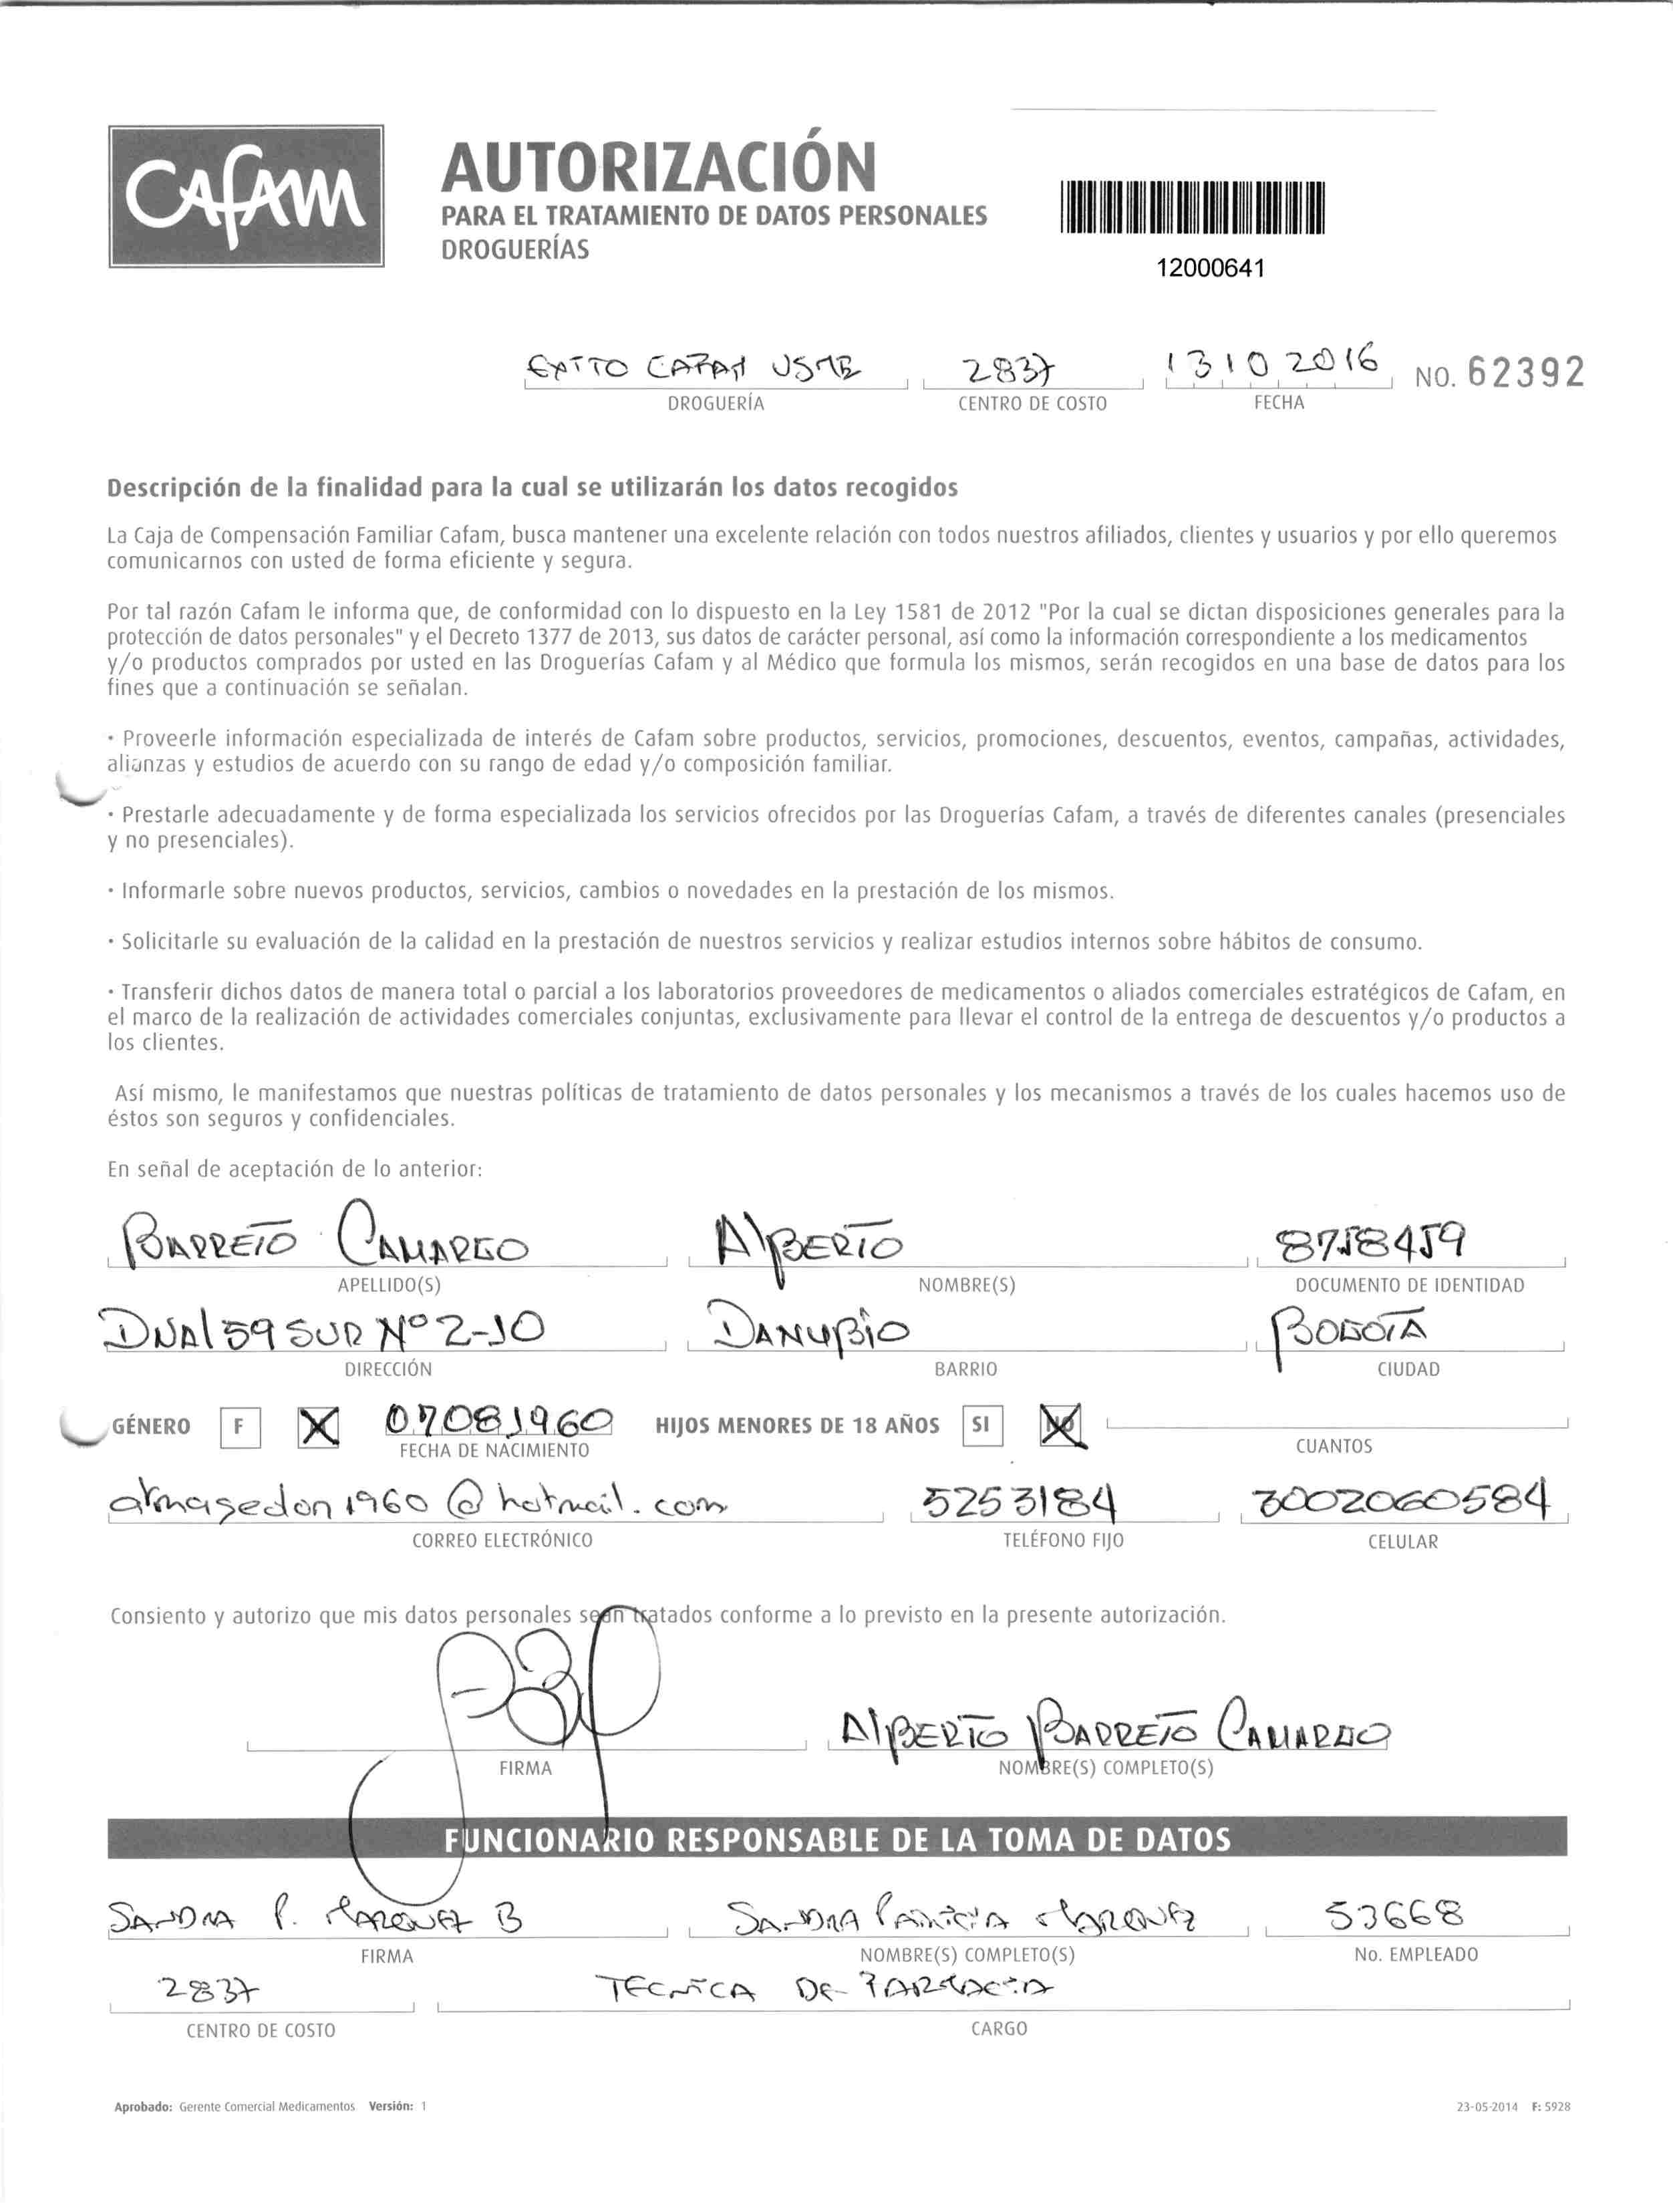 Cafam
AUTORIZACIÓN
PARA EL TRATAMIENTO DE DATOS PERSONALES
DROGUERÍAS
12000641
EXITO CAFAM USME 2837 13 10 2016 NO. 62392
DROGUERÍA CENTRO DE COSTO FECHA
Descripción de la finalidad para la cual se utilizarán los datos recogidos
La Caja de Compensación Familiar Cafam, busca mantener una excelente relación con todos nuestros afiliados, clientes y usuarios y por ello queremos
comunicarnos con usted de forma eficiente y segura.
Por tal razón Cafam le informa que, de conformidad con lo dispuesto en la Ley 1581 de 2012 "Por la cual se dictan disposiciones generales para la
protección de datos personales" y el Decreto 1377 de 2013, sus datos de carácter personal, así como la información correspondiente a los medicamentos
y/o productos comprados por usted en las Droguerías Cafam y al Médico que formula los mismos, serán recogidos en una base de datos para los
fines que a continuación se señalan.
· Proveerle información especializada de interés de Cafam sobre productos, servicios, promociones, descuentos, eventos, campañas, actividades,
alianzas y estudios de acuerdo con su rango de edad y/o composición familiar.
· Prestarle adecuadamente y de forma especializada los servicios ofrecidos por las Droguerías Cafam, a través de diferentes canales (presenciales
y no presenciales).
· Informarle sobre nuevos productos, servicios, cambios o novedades en la prestación de los mismos.
· Solicitarle su evaluación de la calidad en la prestación de nuestros servicios y realizar estudios internos sobre hábitos de consumo.
· Transferir dichos datos de manera total o parcial a los laboratorios proveedores de medicamentos o aliados comerciales estratégicos de Cafam, en
el marco de la realización de actividades comerciales conjuntas, exclusivamente para llevar el control de la entrega de descuentos y/o productos a
los clientes.
Así mismo, le manifestamos que nuestras políticas de tratamiento de datos personales y los mecanismos a través de los cuales hacemos uso de
éstos son seguros y confidenciales.
En señal de aceptación de lo anterior:
BARRETO CAMARGO ALBERTO 8758459
APELLIDO(S) NOMBRE(S) DOCUMENTO DE IDENTIDAD
59 SUR Nº 2-10 DANUBIO BOGOTA
DIRECCIÓN BARRIO CIUDAD
GÉNERO F X 07081960 HIJOS MENORES DE 18 AÑOS SI NO
FECHA DE NACIMIENTO CUANTOS
armagedon1960@hotmail.com 5253184 3002060584
CORREO ELECTRÓNICO TELÉFONO FIJO CELULAR
Consiento y autorizo que mis datos personales sean tratados conforme a lo previsto en la presente autorización.
ALBERTO BARRETO CAMARGO
FIRMA NOMBRE(S) COMPLETO(S)
FUNCIONARIO RESPONSABLE DE LA TOMA DE DATOS
SANDRA P. MARQUEZ B SANDRA PATRICIA MARQUEZ 53668
FIRMA NOMBRE(S) COMPLETO(S) No. EMPLEADO
2837 TECNICA DE FARMACIA
CENTRO DE COSTO CARGO
Aprobado: Gerente Comercial Medicamentos Versión: 1 23-05-2014 F: 5928